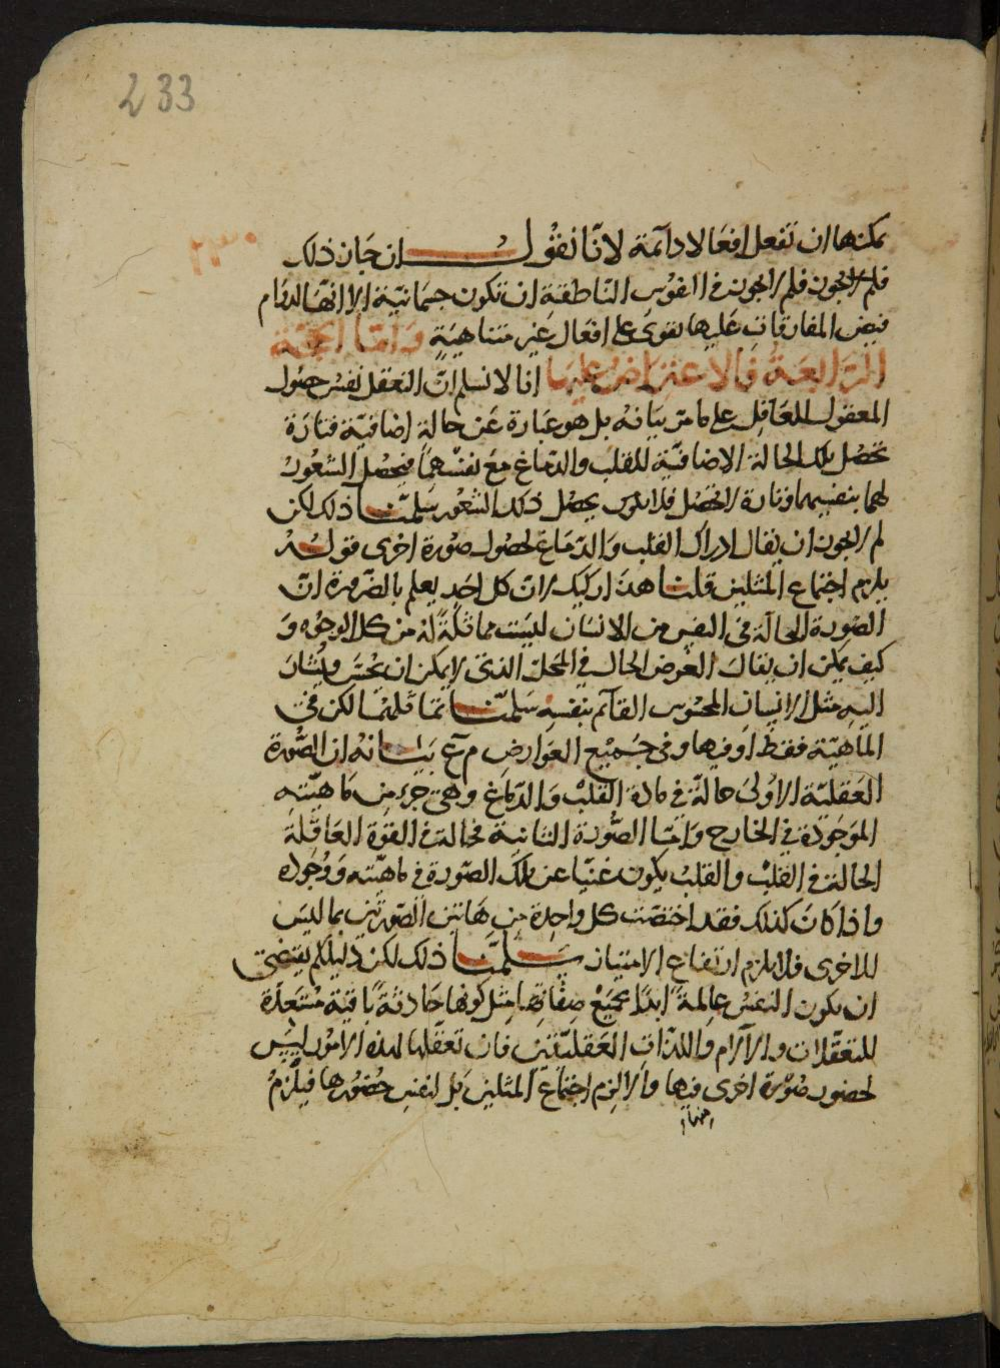 233
٢٣٠
يمكنها ان تفعل افعالا دائمة لانا نقول ان جاز ذلك
فلم لا يجوز فلم لا يجوز في النفوس الناطقة ان تكون جسمانية الا انها لدوام
فيض المفارقات عليها تقوى على افعال غير متناهية واما الحجة
الرابعة فالاعتراض عليها انا لا نسلم ان التعقل نفس حصول
المعقول للعاقل على ما مر بيانه بل هو عبارة عن حالة اضافية فتارة
تحصل تلك الحالة الاضافية للقلب والدماغ مع نفسهما فيحصل الشعور
لهما بنفسيهما وتارة لا تحصل فلا يحصل ذلك الشعور سلمنا ذلك لكن
لم لا يجوز ان يقال ادراك القلب والدماغ لحصول صورة اخرى قوله
يلزم اجتماع المثلين قلنا هذا ركيك لان كل احد يعلم بالضرورة ان
الصورة الحالة في النفس من الانسان ليست مماثلة له من كل الوجوه و
كيف يمكن ان يقال العرض الحال في المحل الذي لا يمكن ان يحس ويشار
اليه مثل الانسان المحسوس القائم بنفسه سلمنا تماثلهما لكن في
الماهية فقط او فيها وفي جميع العوارض م ع بيانه ان الصورة
العقلية الاولى حالة في مادة القلب والدماغ وهي جزء من ماهيته
الموجودة في الخارج واما الصورة الثانية فحالة في القوة العاقلة
الحالة في القلب والقلب يكون غنيا عن تلك الصورة في ماهيته ووجوده
واذا كان كذلك فقد اختصت كل واحدة من هاتين الصورتين بما ليس
للاخرى فلا يلزم ارتفاع الامتياز سلمنا ذلك لكن دليلكم يقتضي
ان يكون النفس عالمة ابدا بجميع صفاتها مثل كونها حادثة باقية مستعدة
للتعقلات والآلام واللذات العقليتين فان تعقلها لهذه الامور ليس
لحضور صورة اخرى فيها والا لزم اجتماع المثلين بل لنفس حضورها فيلزم